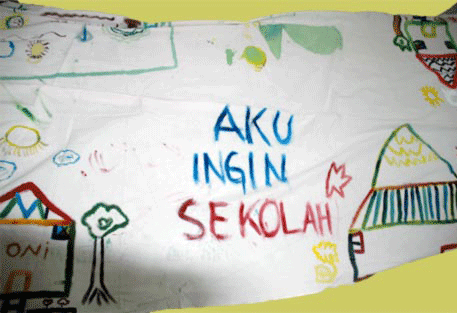 AKU
INGIN
SEKOLAH
ONI